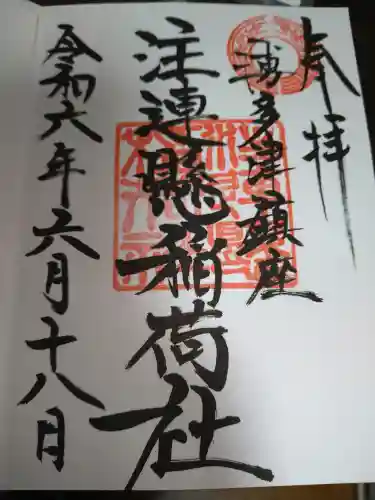 奉拝
博多津鎮座
注連懸稲荷社
令和六年六月十八月